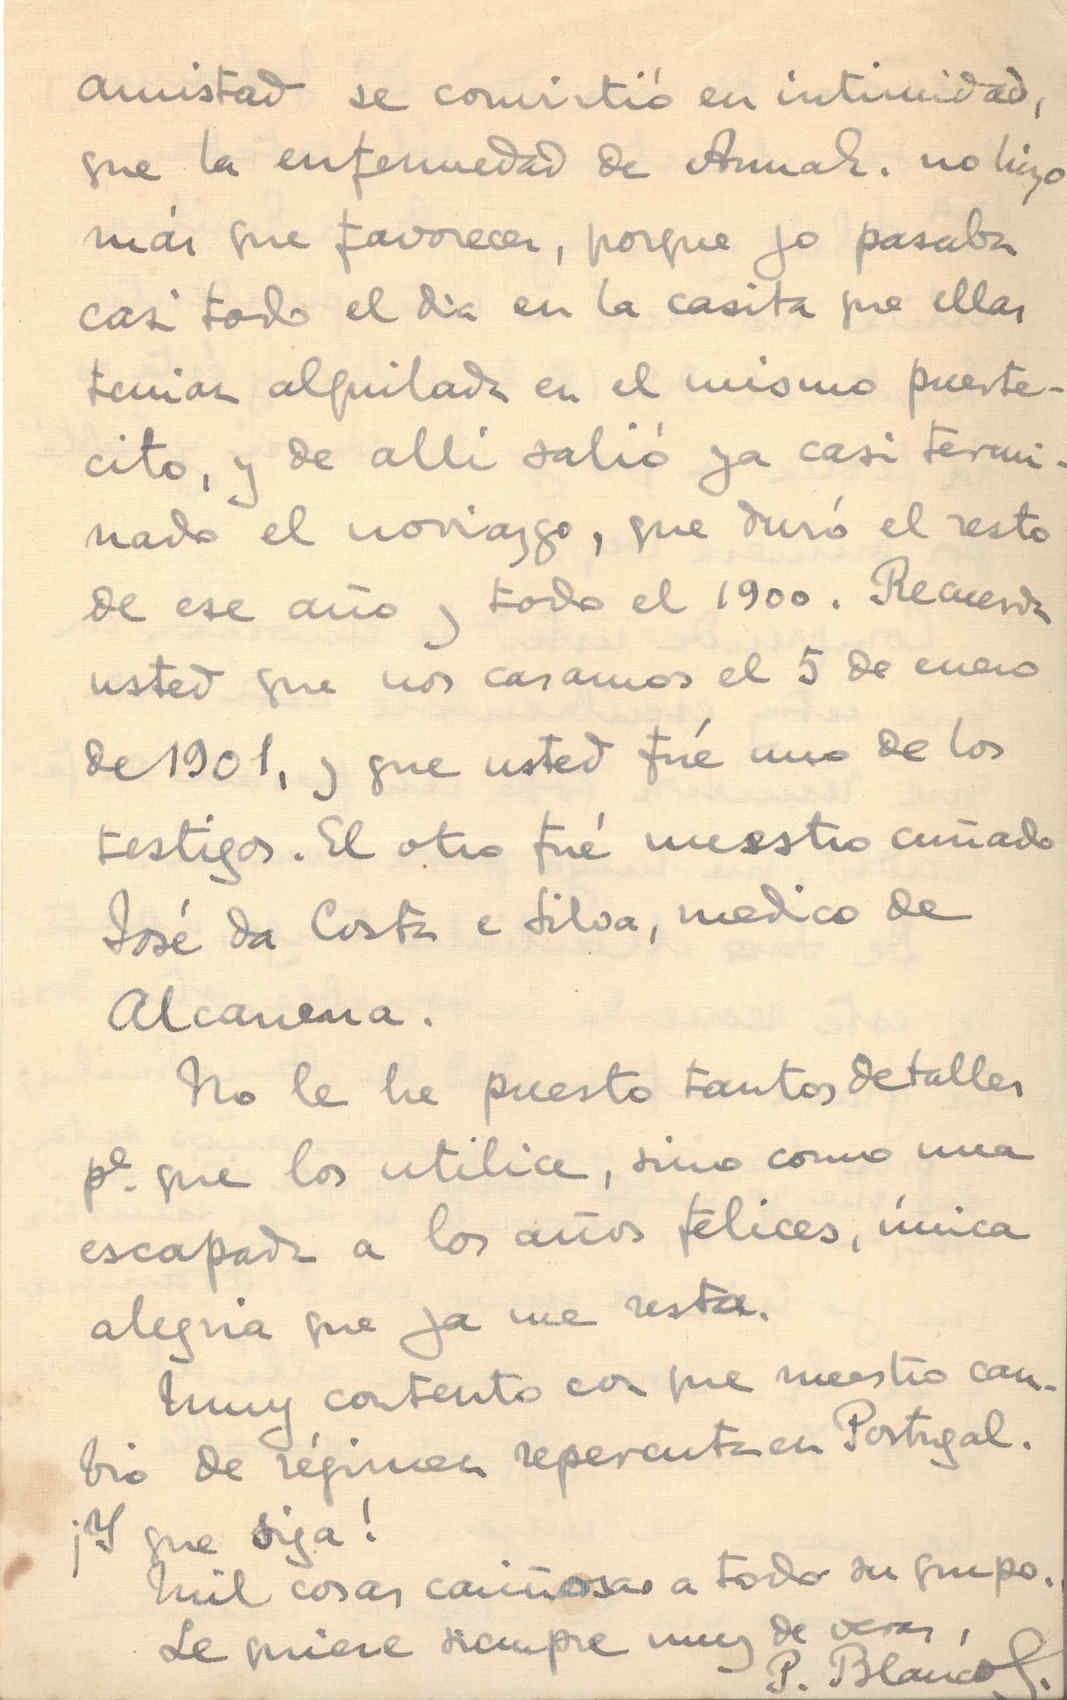 amistad se convirtió en intimidad,
que la enfermedad de Annah. no hizo
más que favorecer, porque yo pasaba
casi todo el dia en la casita que ellas
tenian alquilada en el mismo puerte-
cito, y de alli salió ya casi termi-
nado el noviazgo, que duró el resto
de ese año y todo el 1900. Recuerda
usted que nos casamos el 5 de enero
de 1901, y que usted fué uno de los
testigos. El otro fué nuestro cuñado
José da Costa e Silva, medico de
Alcanena.
No le he puesto tantos detalles
pª. que los utilice, sino como una
escapada a los años felices, única
alegria que ya me resta.
Muy contento con que nuestro cam-
bio de régimen repercuta en Portugal.
¡Y que siga!
Mil cosas cariñosas a todo su grupo.
Le quiere siempre muy de veras,
P. Blanco S.